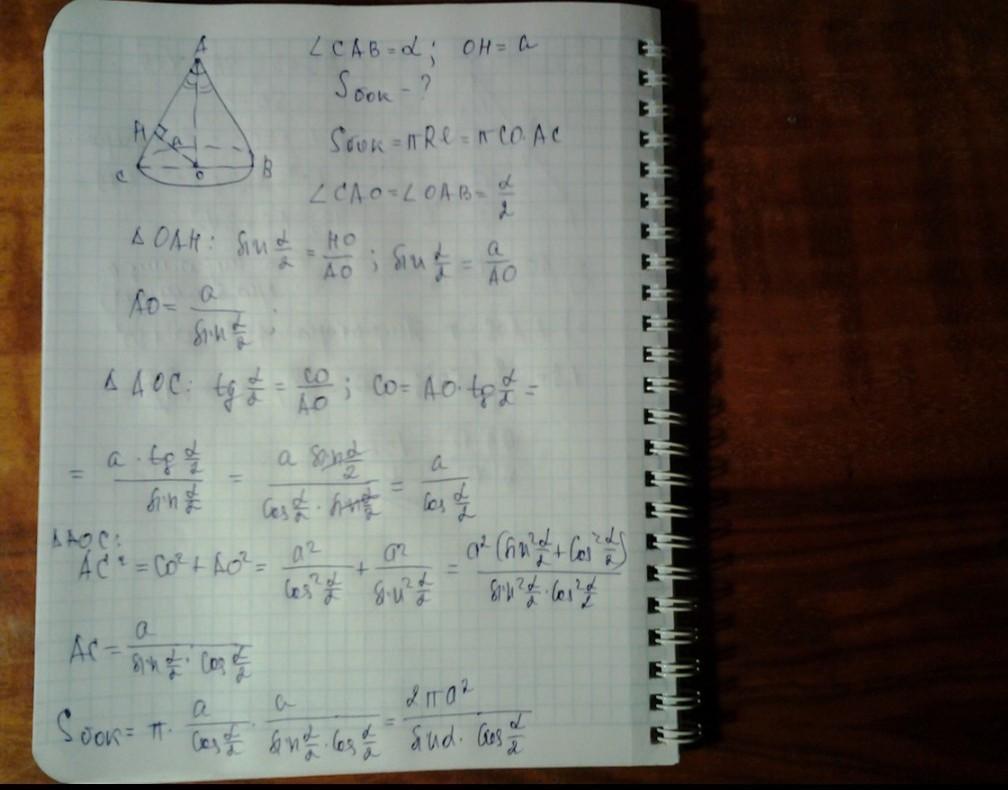 A
H
a
C
O
B
∠CAB = α; OH = a
Sбок - ?
Sбок = πRl = πCO·AC
∠CAO = ∠OAB = α/2
Δ OAH: sin α/2 = HO/AO; sin α/2 = a/AO
AO = a/(sin α/2);
Δ AOC: tg α/2 = CO/AO; CO = AO · tg α/2 =
= (a · tg α/2)/(sin α/2) = (a sin α/2)/(cos α/2 · sin α/2) = a/(cos α/2)
ΔAOC:
AC² = CO² + AO² = a²/(cos² α/2) + a²/(sin² α/2) = a²(sin² α/2 + cos² α/2)/(sin² α/2 · cos² α/2)
AC = a/(sin α/2 · cos α/2)
Sбок = π · a/(cos α/2) · a/(sin α/2 · cos α/2) = 2πa²/(sin α · cos α/2)